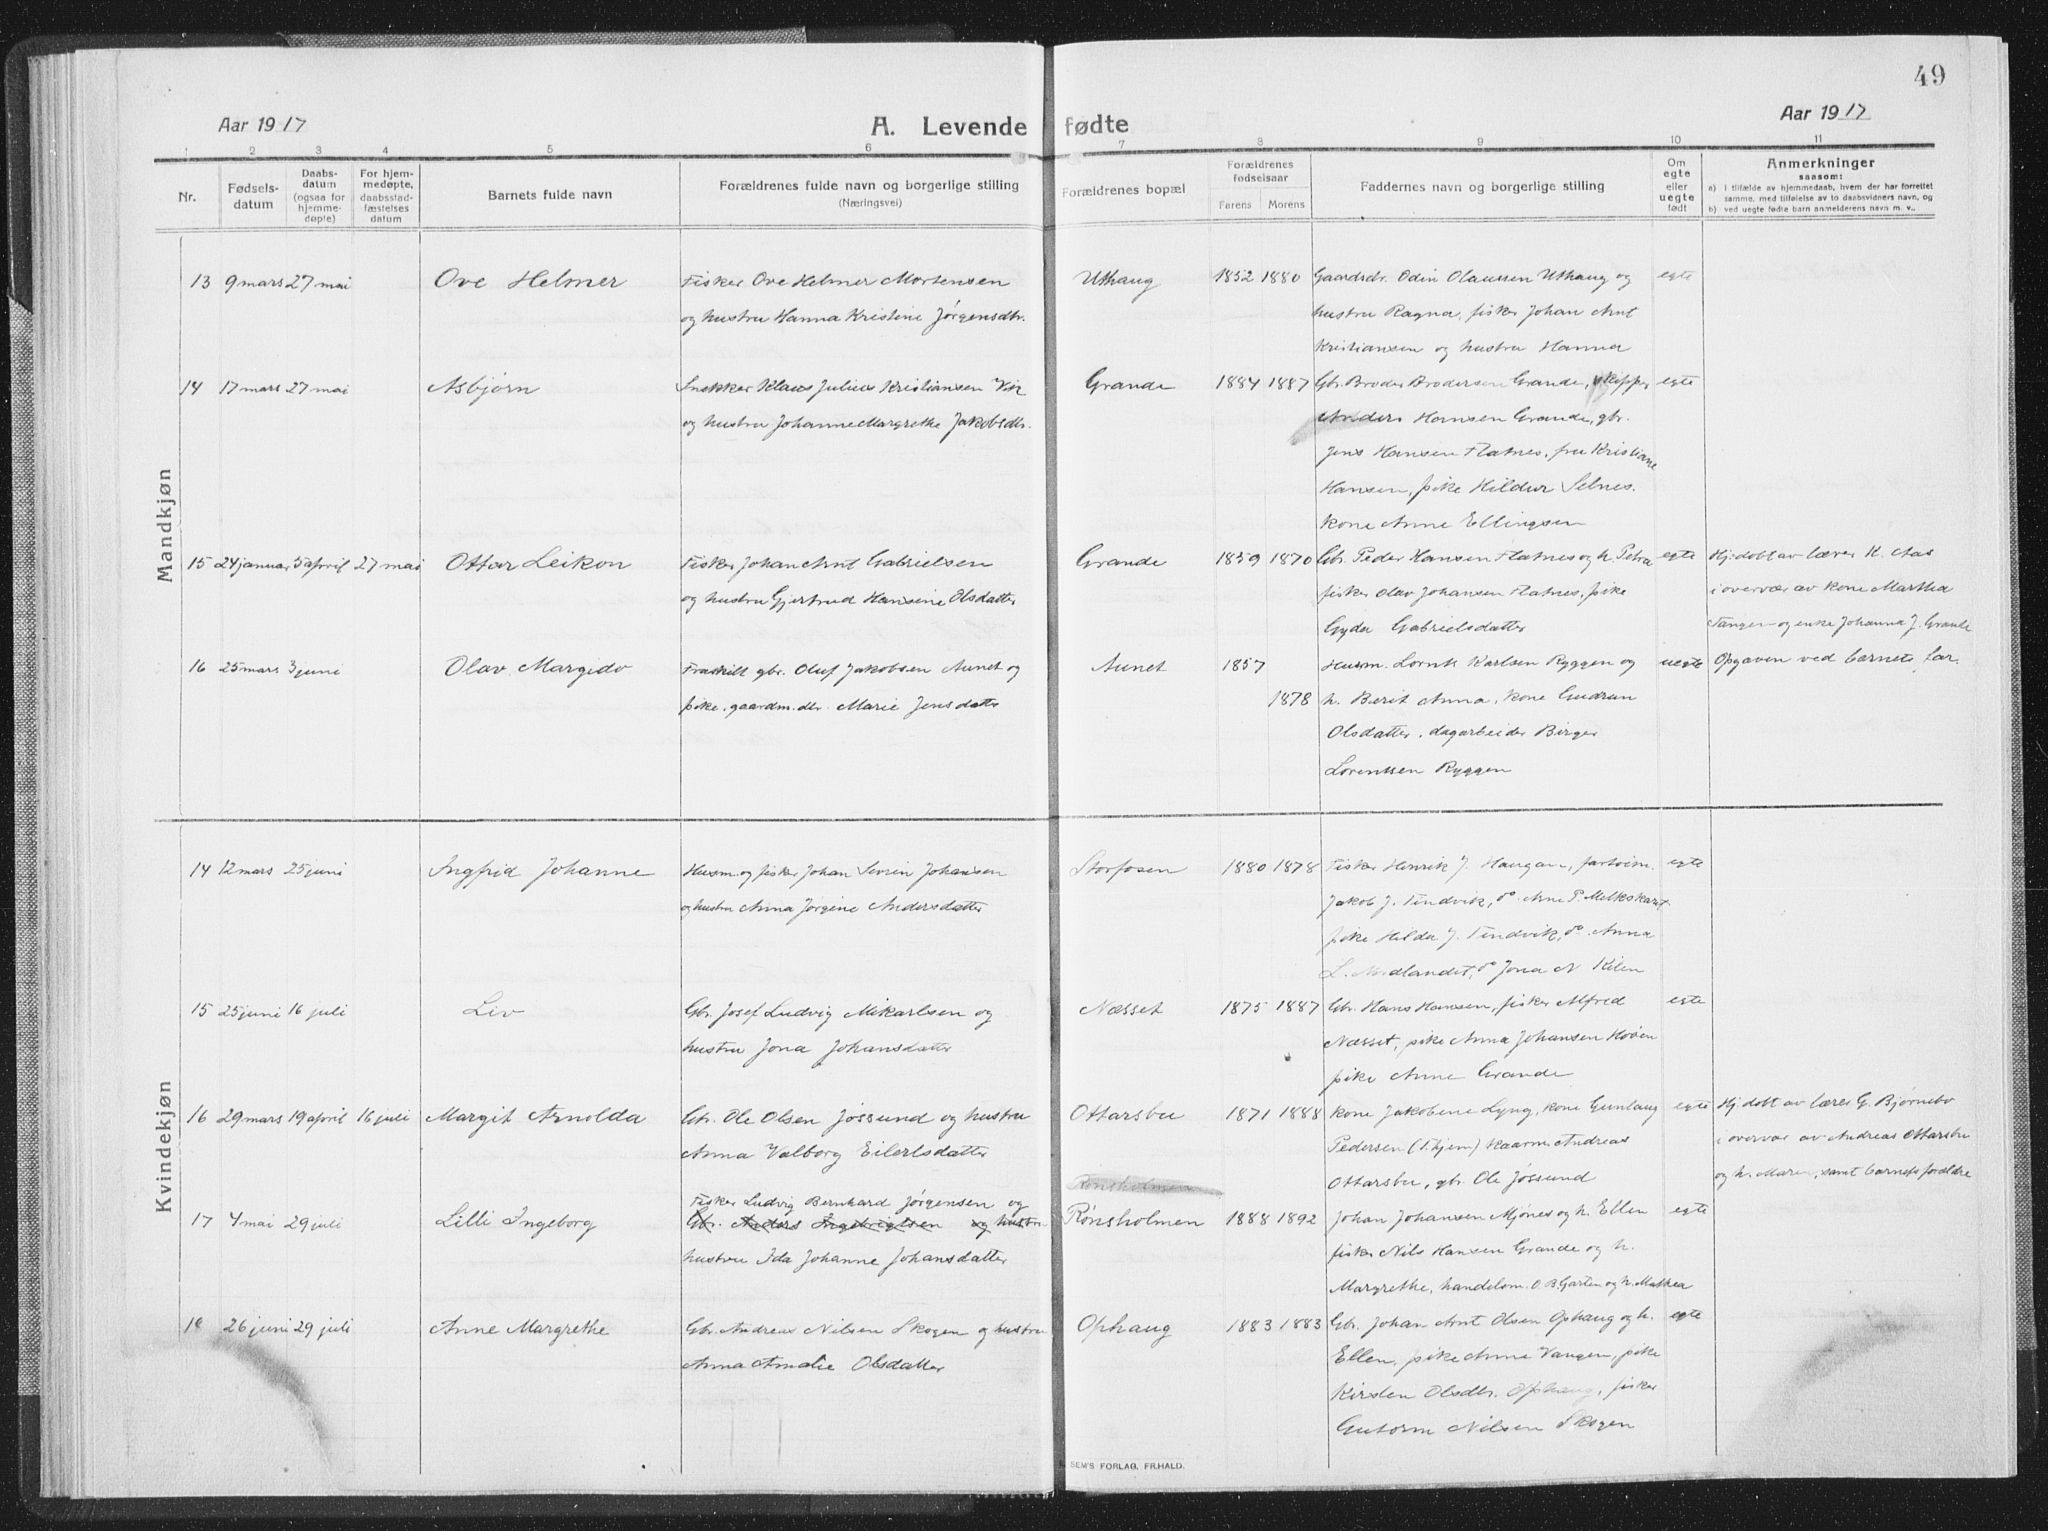 49
Aar 1917
A. Levende fødte
Aar 1917
1 2 3 4 5 6 7 8 9 10 11
Nr.
Fødsels-
datum
Daabs-
datum
(ogsaa for
hjemme-
døpte)
For hjem-
medøpte,
daabsstad-
fæstelses
datum
Barnets fulde navn
Forældrenes fulde navn og borgerlige stilling
(Næringsvei)
Forældrenes bopæl
Forældrenes
fødselsaar
Farens Morens
Faddernes navn og borgerlige stilling
Om
egte
eller
uegte
født
Anmerkninger
saasom:
a) i tilfælde av hjemmedaab, hvem der har forrettet
samme, med tilføielse av to daabsvidners navn, og
b) ved uegte fødte barn anmelderens navn m. v.,
Mandkjøn
13 9 mars 27 mai Ove Helmer Fisker Ove Helmer Mortensen Uthaug 1852 1880 Gaardsdr. Odin Olaussen Uthaug og egte
og hustru Hanna Kristine Jørgensdtr. hustru Ragna, fisker Johan Arnt
Kristiansen og hustru Hanna
14 17 mars 27 mai Asbjørn Snekker Klaus Julius Kristiansen Vik Grande 1884 1887 Gbr. Broder Brodersen Grande, skipper egte
og hustru Johanne Margrethe Jakobsdtr. Anders Hansen Grande, gbr.
Jens Hansen Flatnes, fru Kristiane
Hansen, pike Hildur Selnes.
kone Anne Ellingsen
15 24 januar 5 april 27 mai Ottar Leikon Fisker Johan Arnt Gabrielsen Grande 1859 1870 Gbr. Peder Hansen Flatnes og h. Petra egte Hj. døbt av lærer K. Aas
og hustru Gjertrud Hansine Olsdatter fisker Olav Johansen Flatnes, pike i overvær av kone Martha
Gyda Gabrielsdatter Tangen og enke Johanna J. Grande
16 25 mars 3 juni Olav Margido Fraskilt gbr. Oluf Jakobsen Aunet og Aunet 1857 Husm. Lornts Karlsen Ryggen og uegte Opgaven ved barnets far.
pike, gaardm.dtr. Marie Jensdatter 1878 h. Berit Anna, kone Gudrun
Olsdatter, dagarbeider Birger
Lorentsen Ryggen
Kvindekjøn
14 12 mars 25 juni Ingfrid Johanne Husm. og fisker Johan Sevrin Johansen Storfosen 1880 1878 Fisker Henrik J. Haugan, partseier egte
og hustru Anna Jørgine Andersdatter Jakob J. Tindvik, do Arne P. Melkskaret
pike Hilda J. Tindvik, do. Anna
L. Nordlandet, do Jona N Kilen
15 25 juni 16 juli Liv Gbr. Josef Ludvig Mikarlsen og Næsset 1875 1887 Gbr. Hans Hansen, fisker Alfred egte
hustru Jona Johansdatter Næsset, pike Anna Johansen Hoven
pike Anne Grande
16 29 mars 19 april 16 juli Margit Arnolda Gbr. Ole Olsen Jøssund og hustru Ottarsbu 1871 1888 kone Jakobene Lyng, kone Gunlaug egte Hj. døbt av lærer G. Bjørnebo
Anna Valborg Eilertsdatter Pedersen (t. hjem) kaarm. Andreas i overvær av Andreas Ottarsbu
Rønsholmen Ottarsbu, gbr. Ole Jøssund og h. Maren, samt barnets forældre
Fisker Ludvig Bernhard Jørgensen og
17 4 mai 29 juli Lilli Ingeborg Gbr. Anders Ingebrigtsen og hustru Rønsholmen 1888 1892 Johan Johansen Mjønes og h. Ellen egte
hustru Ida Johanne Johansdatter fisker Nils Hansen Grande og h.
Margrethe, handelsm. O. B. Garten og h. Mathea
18 26 juni 29 juli Anne Margrethe Gbr. Andreas Nilsen Skogen og hustru Ophaug 1883 1883 Gbr. Johan Arnt Olsen Ophaug og h. egte
Anna Amalie Olsdatter Ellen, pike Anne Vangen, pike
Kirsten Olsdtr. Ophaug, fisker
Gutorm Nilsen Skogen
SEM'S FORLAG, FR.HALD.